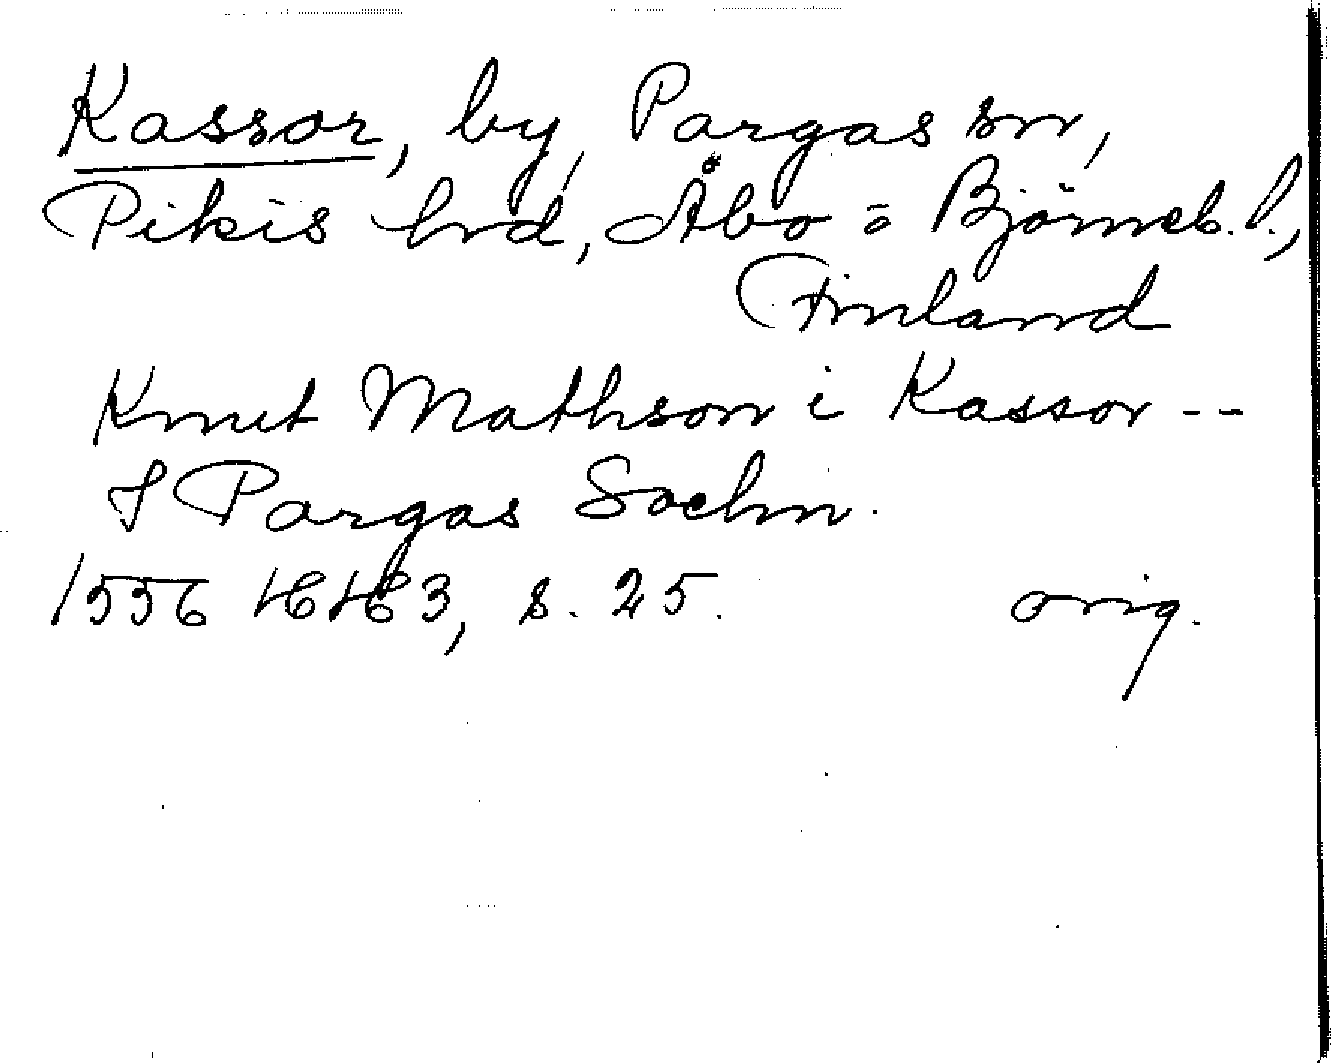 Kassor, by, Pargas sn,
Pikis hrd, Åbo o Björneb. l.,
Finland
Knut Mathson i Kassor --
I Pargas Sochn.
1556 , s. 25. orig.